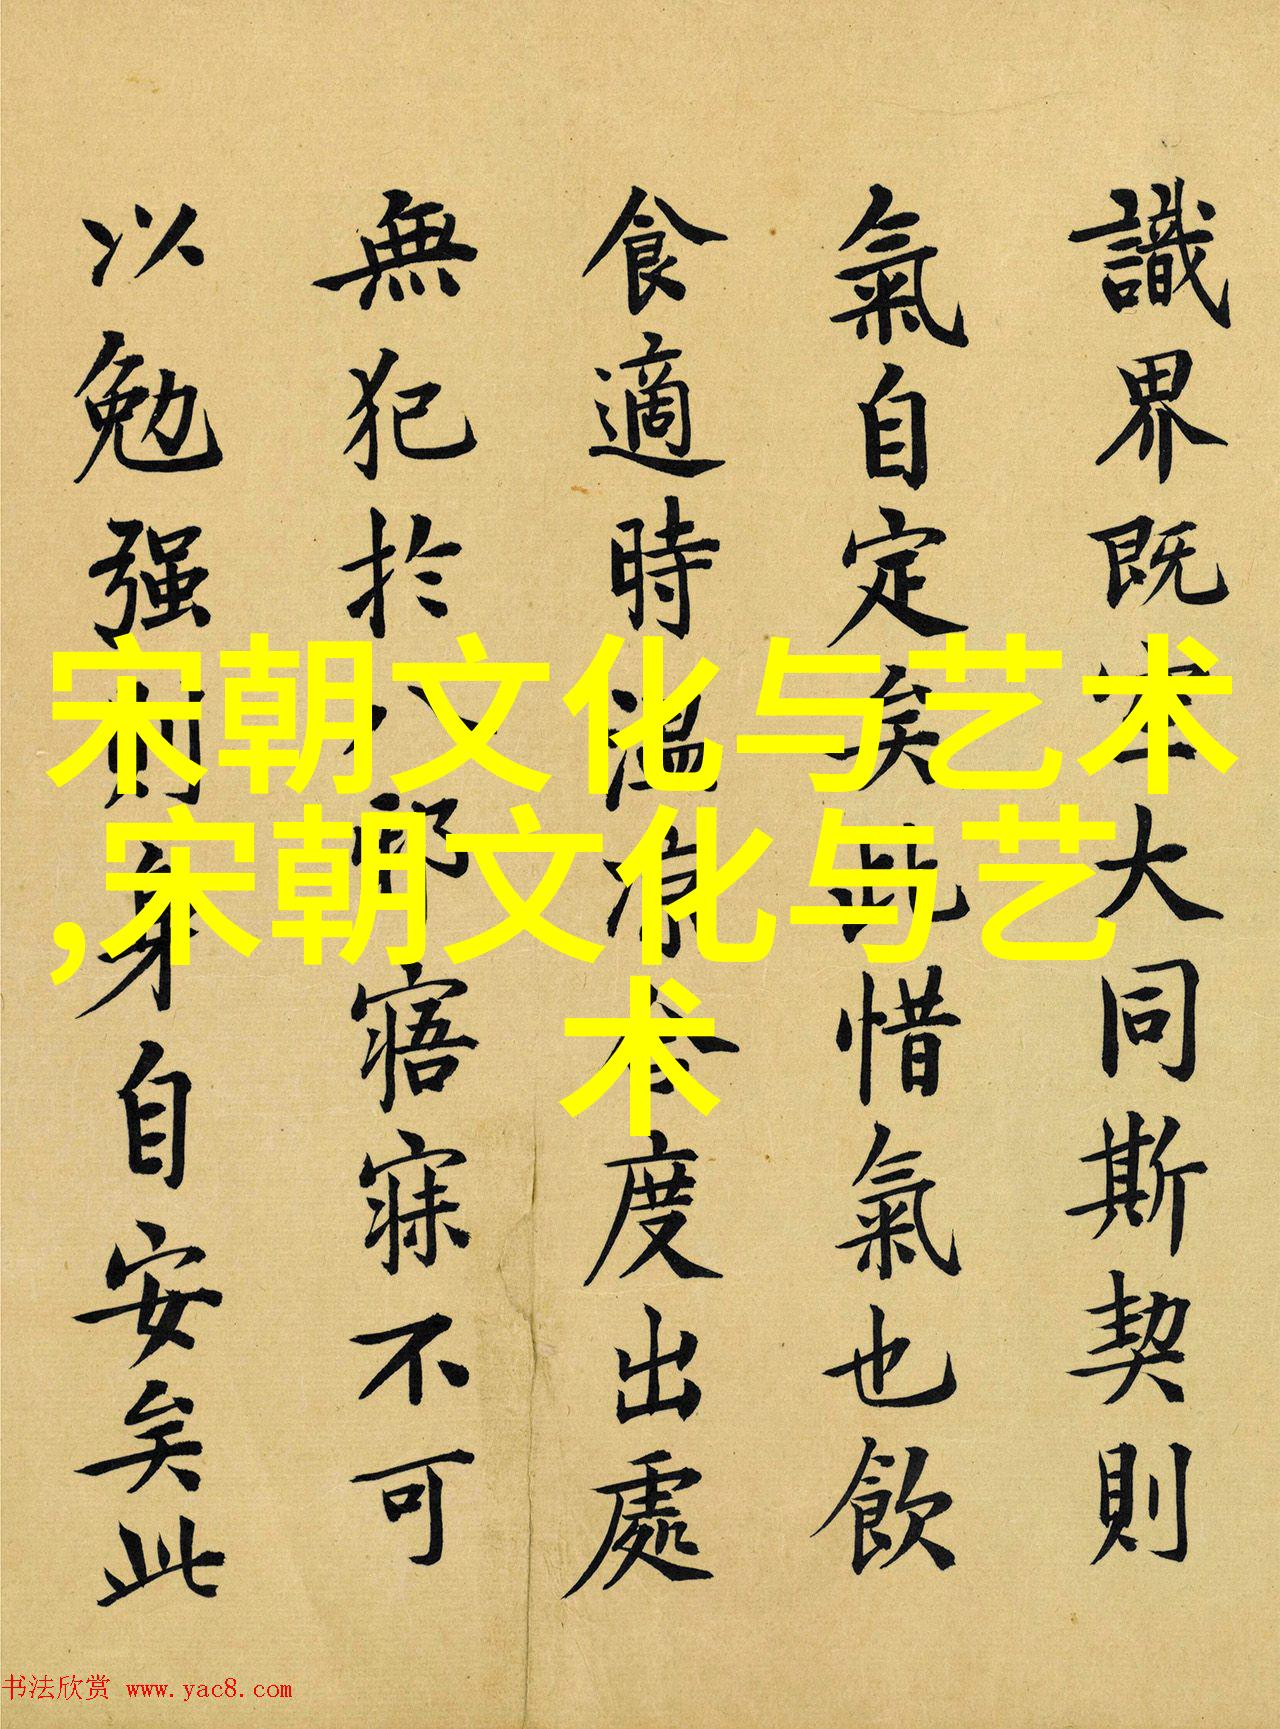 識界既空大同斯契則
氣自定矣此惜氣也飲
食適時溫涼合度出處
無犯於八邪寤寐不可
以勉强則身自安矣此
宋朝文化与艺术
,宋朝文化与艺
术
书法欣赏 www.yac8.com